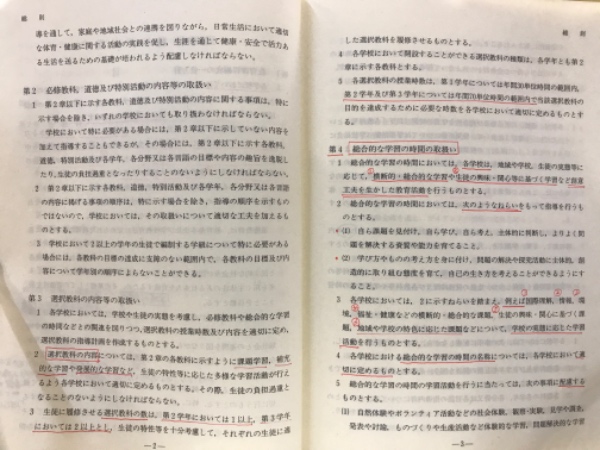 総則
導を通して，家庭や地域社会との連携を図りながら，日常生活において適切
な体育・健康に関する活動の実践を促し，生涯を通じて健康・安全で活力あ
る生活を送るための基礎が培われるよう配慮しなければならない。
第2 必修教科，道徳及び特別活動の内容等の取扱い
1 第2章以下に示す各教科，道徳及び特別活動の内容に関する事項は，特に
示す場合を除き，いずれの学校においても取り扱わなければならない。
学校において特に必要がある場合には，第2章以下に示していない内容を
加えて指導することもできるが，その場合には，第2章以下に示す各教科，
道徳，特別活動及び各学年，各分野又は各言語の目標や内容の趣旨を逸脱し
たり，生徒の負担過重となったりすることのないようにしなければならない。
2 第2章以下に示す各教科，道徳，特別活動及び各学年，各分野又は各言語
の内容に掲げる事項の順序は，特に示す場合を除き，指導の順序を示すもの
ではないので，学校においては，その取扱いについて適切な工夫を加えるも
のとする。
3 学校において2以上の学年の生徒で編制する学級について特に必要がある
場合には，各教科の目標の達成に支障のない範囲内で，各教科の目標及び内
容について学年別の順序によらないことができる。
第3 選択教科の内容等の取扱い
1 各学校においては，学校や生徒の実態を考慮し，必修教科や総合的な学習
の時間などとの関連を図りつつ，選択教科の授業時数及び内容を適切に定め，
選択教科の指導計画を作成するものとする。
2 選択教科の内容については，第2章の各教科に示すように課題学習，補充
的な学習や発展的な学習など，生徒の特性等に応じた多様な学習活動が行え
るよう各学校において適切に定めるものとする。その際，生徒の負担過重と
なることのないようにしなければならない。
3 生徒に履修させる選択教科の数は，第2学年においては1以上，第3学年
においては2以上とし，生徒の特性等を十分考慮して，それぞれの生徒に適
―2―
総則
した選択教科を履修させるものとする。
4 各学校において開設することができる選択教科の種類は，各学年とも第2
章に示す各教科とする。
5 各選択教科の授業時数は，第1学年については年間30単位時間の範囲内，
第2学年及び第3学年については年間70単位時間の範囲内で当該選択教科の
目的を達成するために必要な時数を各学校において適切に定めるものとす
る。
第4 総合的な学習の時間の取扱い
1 総合的な学習の時間においては，各学校は，地域や学校，生徒の実態等に
応じて，横断的・総合的な学習や生徒の興味・関心等に基づく学習など創意
工夫を生かした教育活動を行うものとする。
2 総合的な学習の時間においては，次のようなねらいをもって指導を行うも
のとする。
(1) 自ら課題を見付け，自ら学び，自ら考え，主体的に判断し，よりよく問
題を解決する資質や能力を育てること。
(2) 学び方やものの考え方を身に付け，問題の解決や探究活動に主体的，創
造的に取り組む態度を育て，自己の生き方を考えることができるようにす
ること。
3 各学校においては，2に示すねらいを踏まえ，例えば国際理解，情報，環
境，福祉・健康などの横断的・総合的な課題，生徒の興味・関心に基づく課
題，地域や学校の特色に応じた課題などについて，学校の実態に応じた学習
活動を行うものとする。
4 各学校における総合的な学習の時間の名称については，各学校において適
切に定めるものとする。
5 総合的な学習の時間の学習活動を行うに当たっては，次の事項に配慮する
ものとする。
(1) 自然体験やボランティア活動などの社会体験，観察・実験，見学や調査，
発表や討論，ものづくりや生産活動など体験的な学習，問題解決的な学習
―3―